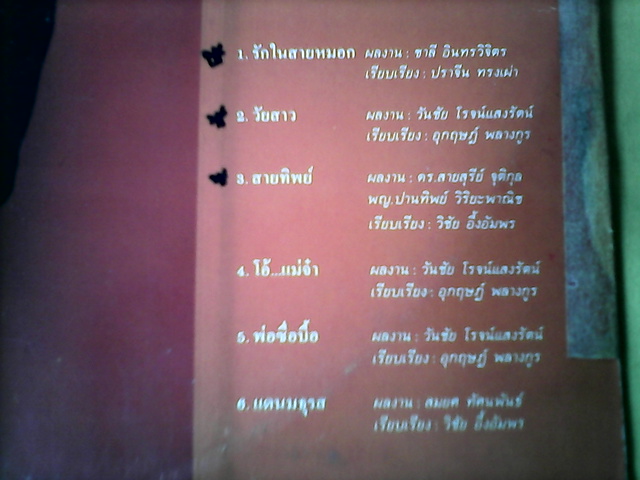 1. รักในสายหมอก ผลงาน : ชาลี อินทรวิจิตร
เรียบเรียง : ปราจีน ทรงเผ่า
2. วัยสาว ผลงาน : วันชัย โรจน์แสงรัตน์
เรียบเรียง : อุกฤษฎ์ พลางกูร
3. สายทิพย์ ผลงาน : ดร.สายสุรีย์ จุติกุล
พญ.ปานทิพย์ วิริยะพาณิช
เรียบเรียง : วิชัย อึ้งอัมพร
4. โอ้...แม่จ๋า ผลงาน : วันชัย โรจน์แสงรัตน์
เรียบเรียง : อุกฤษฎ์ พลางกูร
5. พ่อซื่อบื้อ ผลงาน : วันชัย โรจน์แสงรัตน์
เรียบเรียง : อุกฤษฎ์ พลางกูร
6. แดนมธุรส ผลงาน : สมยศ ทัศนพันธ์
เรียบเรียง : วิชัย อึ้งอัมพร